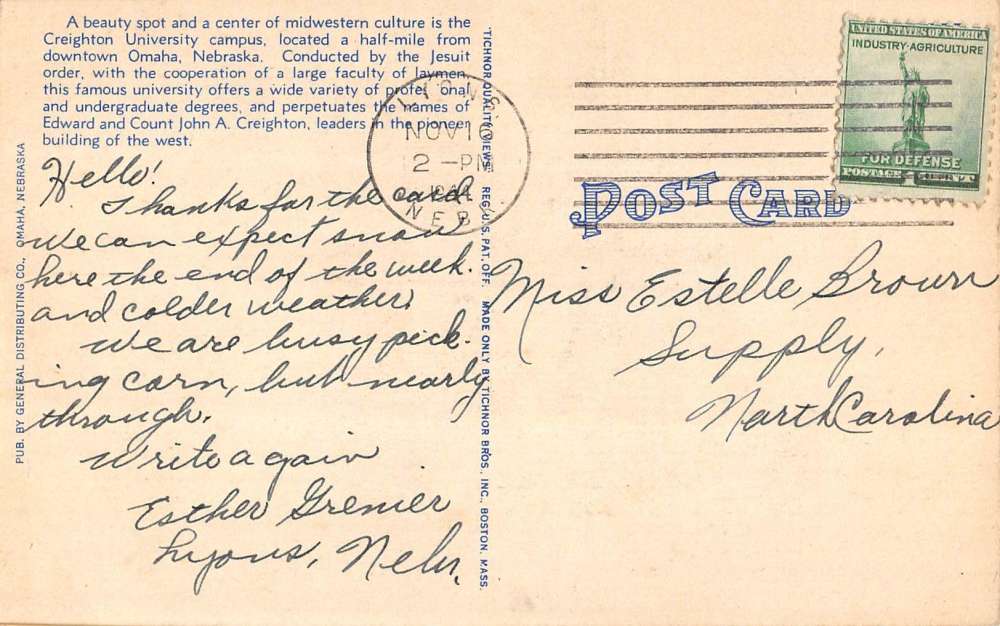 A beauty spot and a center of midwestern culture is the
Creighton University campus, located a half-mile from
downtown Omaha, Nebraska. Conducted by the Jesuit
order, with the cooperation of a large faculty of laymen,
this famous university offers a wide variety of profes onal
and undergraduate degrees, and perpetuates the names of
Edward and Count John A. Creighton, leaders in the pioneer
building of the west.
Hello!
Thanks for the card.
We can expect snow
here the end of the week.
and colder weather.
We are busy pick-
ing corn, but nearly
through.
Write again
Esther Grenier
Lyons, Nebr.
PUB. BY GENERAL DISTRIBUTING CO., OMAHA, NEBRASKA
"TICHNOR QUALITY VIEWS" REG. U. S. PAT. OFF. MADE ONLY BY TICHNOR BROS., INC., BOSTON, MASS.
LYONS
NOV 10
2 - PM
NEB
UNITED STATES OF AMERICA
INDUSTRY·AGRICULTURE
FOR DEFENSE
POSTAGE 1 CENT
POST CARD
Miss Estelle Brown
Supply,
North Carolina